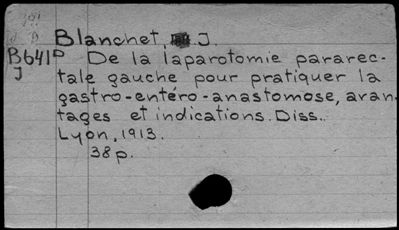 Blanchet, J.
B641D De la laparotomie pararec-
J tale gauche pour pratiquer la
gastro-entéro-anastomose, avan
tages et indications. Diss.
Lyon, 1913.
38p.